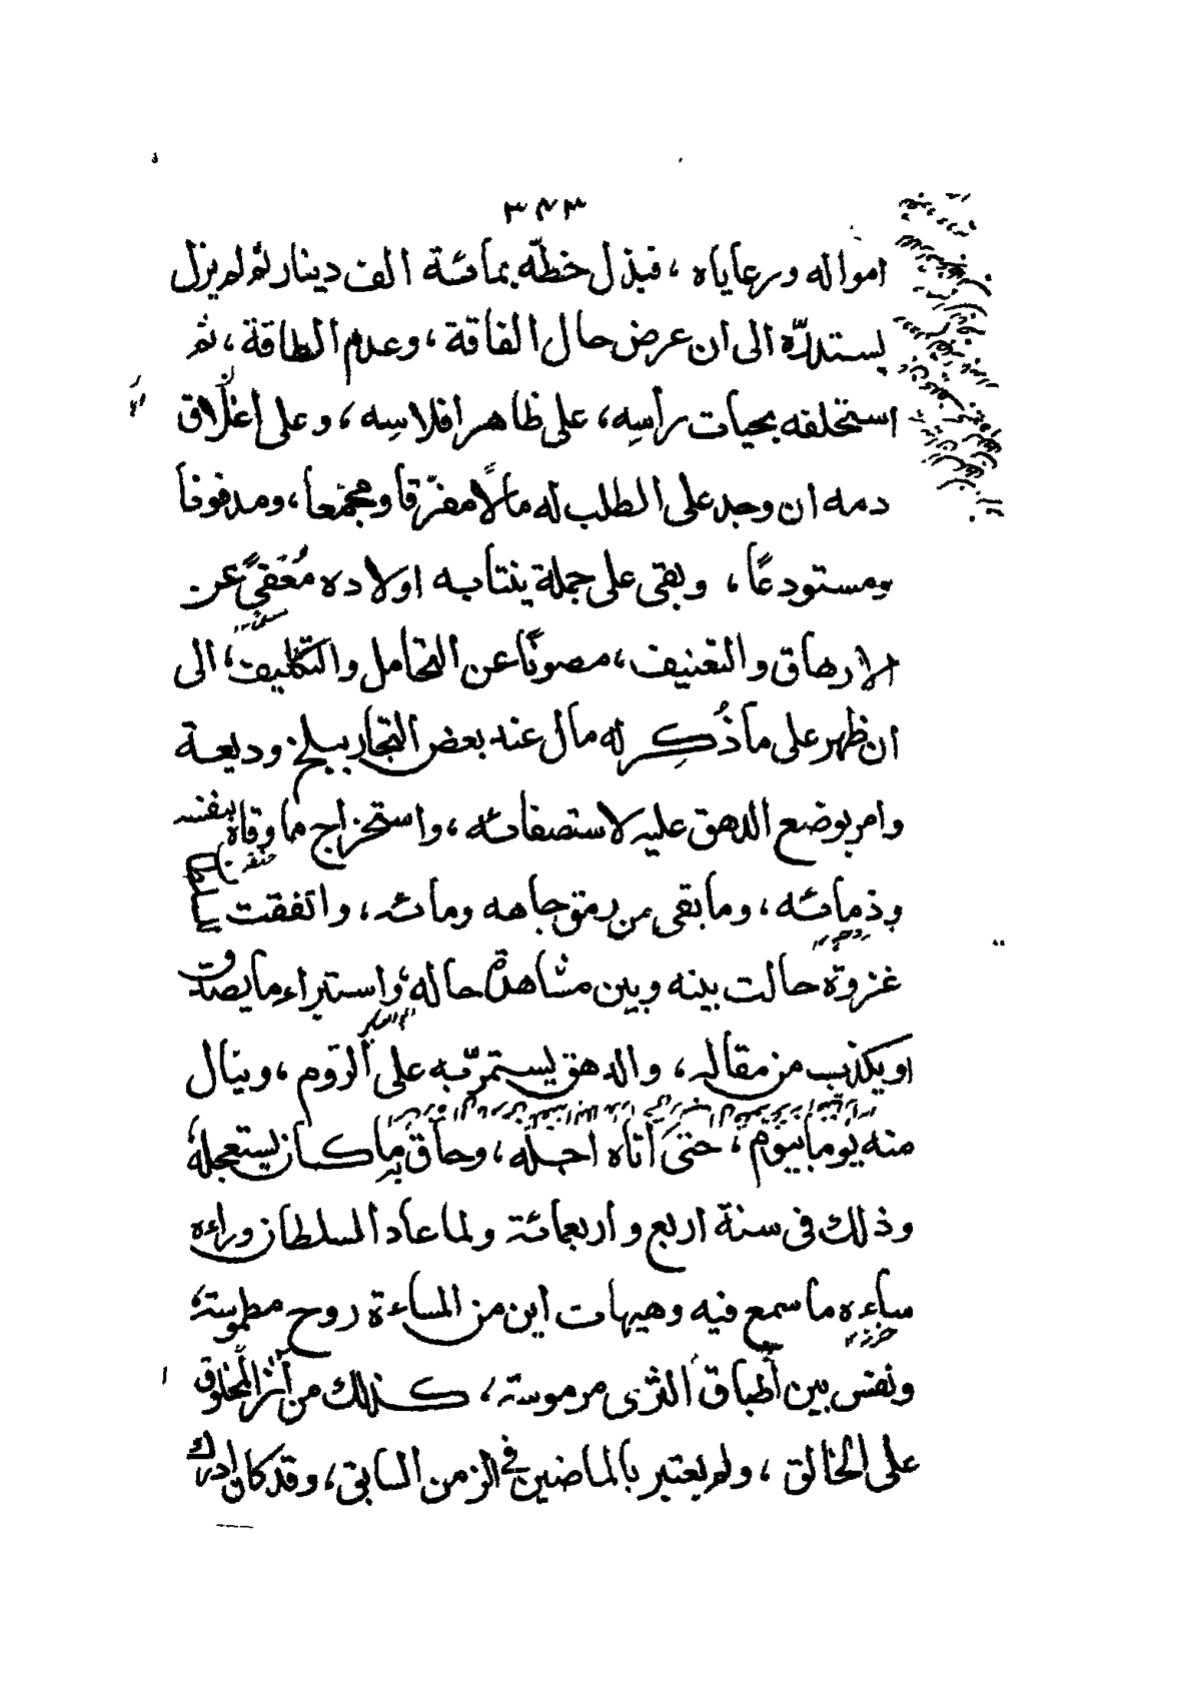 ٣٤٣
امواله ورعاياه، فبذل خطّه بمائة الف دينار ثم لم يزل
يستدرّه الى ان عرض حال الفاقة، وعدم الطاقة، ثم
استحلفه بحيات رأسِه، على ظاهر افلاسِه، وعلى أغلاق
دمه ان وجد على الطلب له مالًا مفرّقا ومجتمعا، ومدفونا
ومستودعًا، وبقى على جملة ينتابه اولاده مُعَفىً عن
الارهاق والتعنيف، مصونًا عن التحامل والتكليف، الى
ان ظهر على ما ذُكِر له مال عند بعض التجار ببلخ وديعة
وامر بوضع الدهق عليه لاستصفائه، واستخراج ما وقاه بنفسه
وذمائه، وما بقى من رمق جاهه ومائه، واتفقت
غزوة حالت بينه وبين مشاهدة حاله، واستبراء ما يصدق
او يكذب من مقاله، والدهق يستمرّ به على الرّوم، وينال
منه يوما بيوم، حتى أتاه اجله، وحاق به ما كان يستعجله
وذلك فى سنة اربع واربعمائة ولما عاد السلطان وراءه
ساءه ما سمع فيه وهيهات اين من المساءة روح مطموسة،
ونفس بين أطباق الثرى مرموسة، كذلك من آثر المخلوق
على الخالق، ولم يعتبر بالماضين فى الزمن السابق، وقد كان ادرك